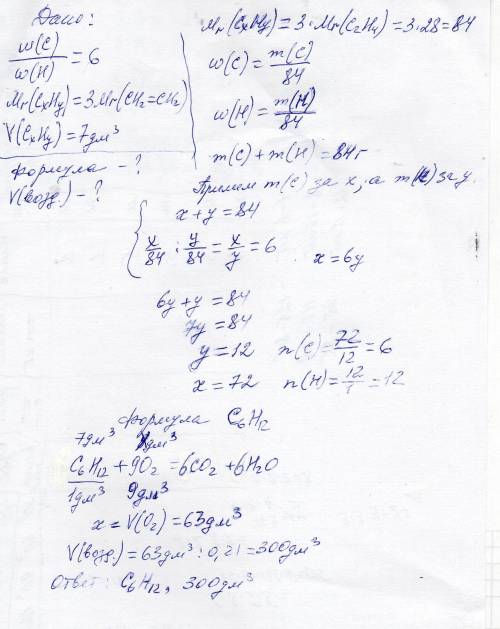 Дано:
w(C)/w(H) = 6
Mr(CxHy) = 3Mr(CH2=CH2)
V(CxHy) = 7дм³
Формула - ?
V(возд.) - ?
Mr(CxHy) = 3·Mr(C2H4) = 3·28 = 84
w(C) = m(C)/84
w(H) = m(H)/84
m(C) + m(H) = 84г
Примем m(C) за x, а m(H) за y.
x + y = 84
x/84 : y/84 = x/y = 6 . x = 6y
6y + y = 84
7y = 84
y = 12 n(C) = 72/12 = 6
x = 72 n(H) = 12/1 = 12
Формула C6H12
7дм³ дм³
C6H12 + 9O2 = 6CO2 + 6H2O
1дм³ 9дм³
x = V(O2) = 63дм³
V(возд.) = 63дм³ : 0,21 = 300дм³
Ответ: C6H12, 300дм³